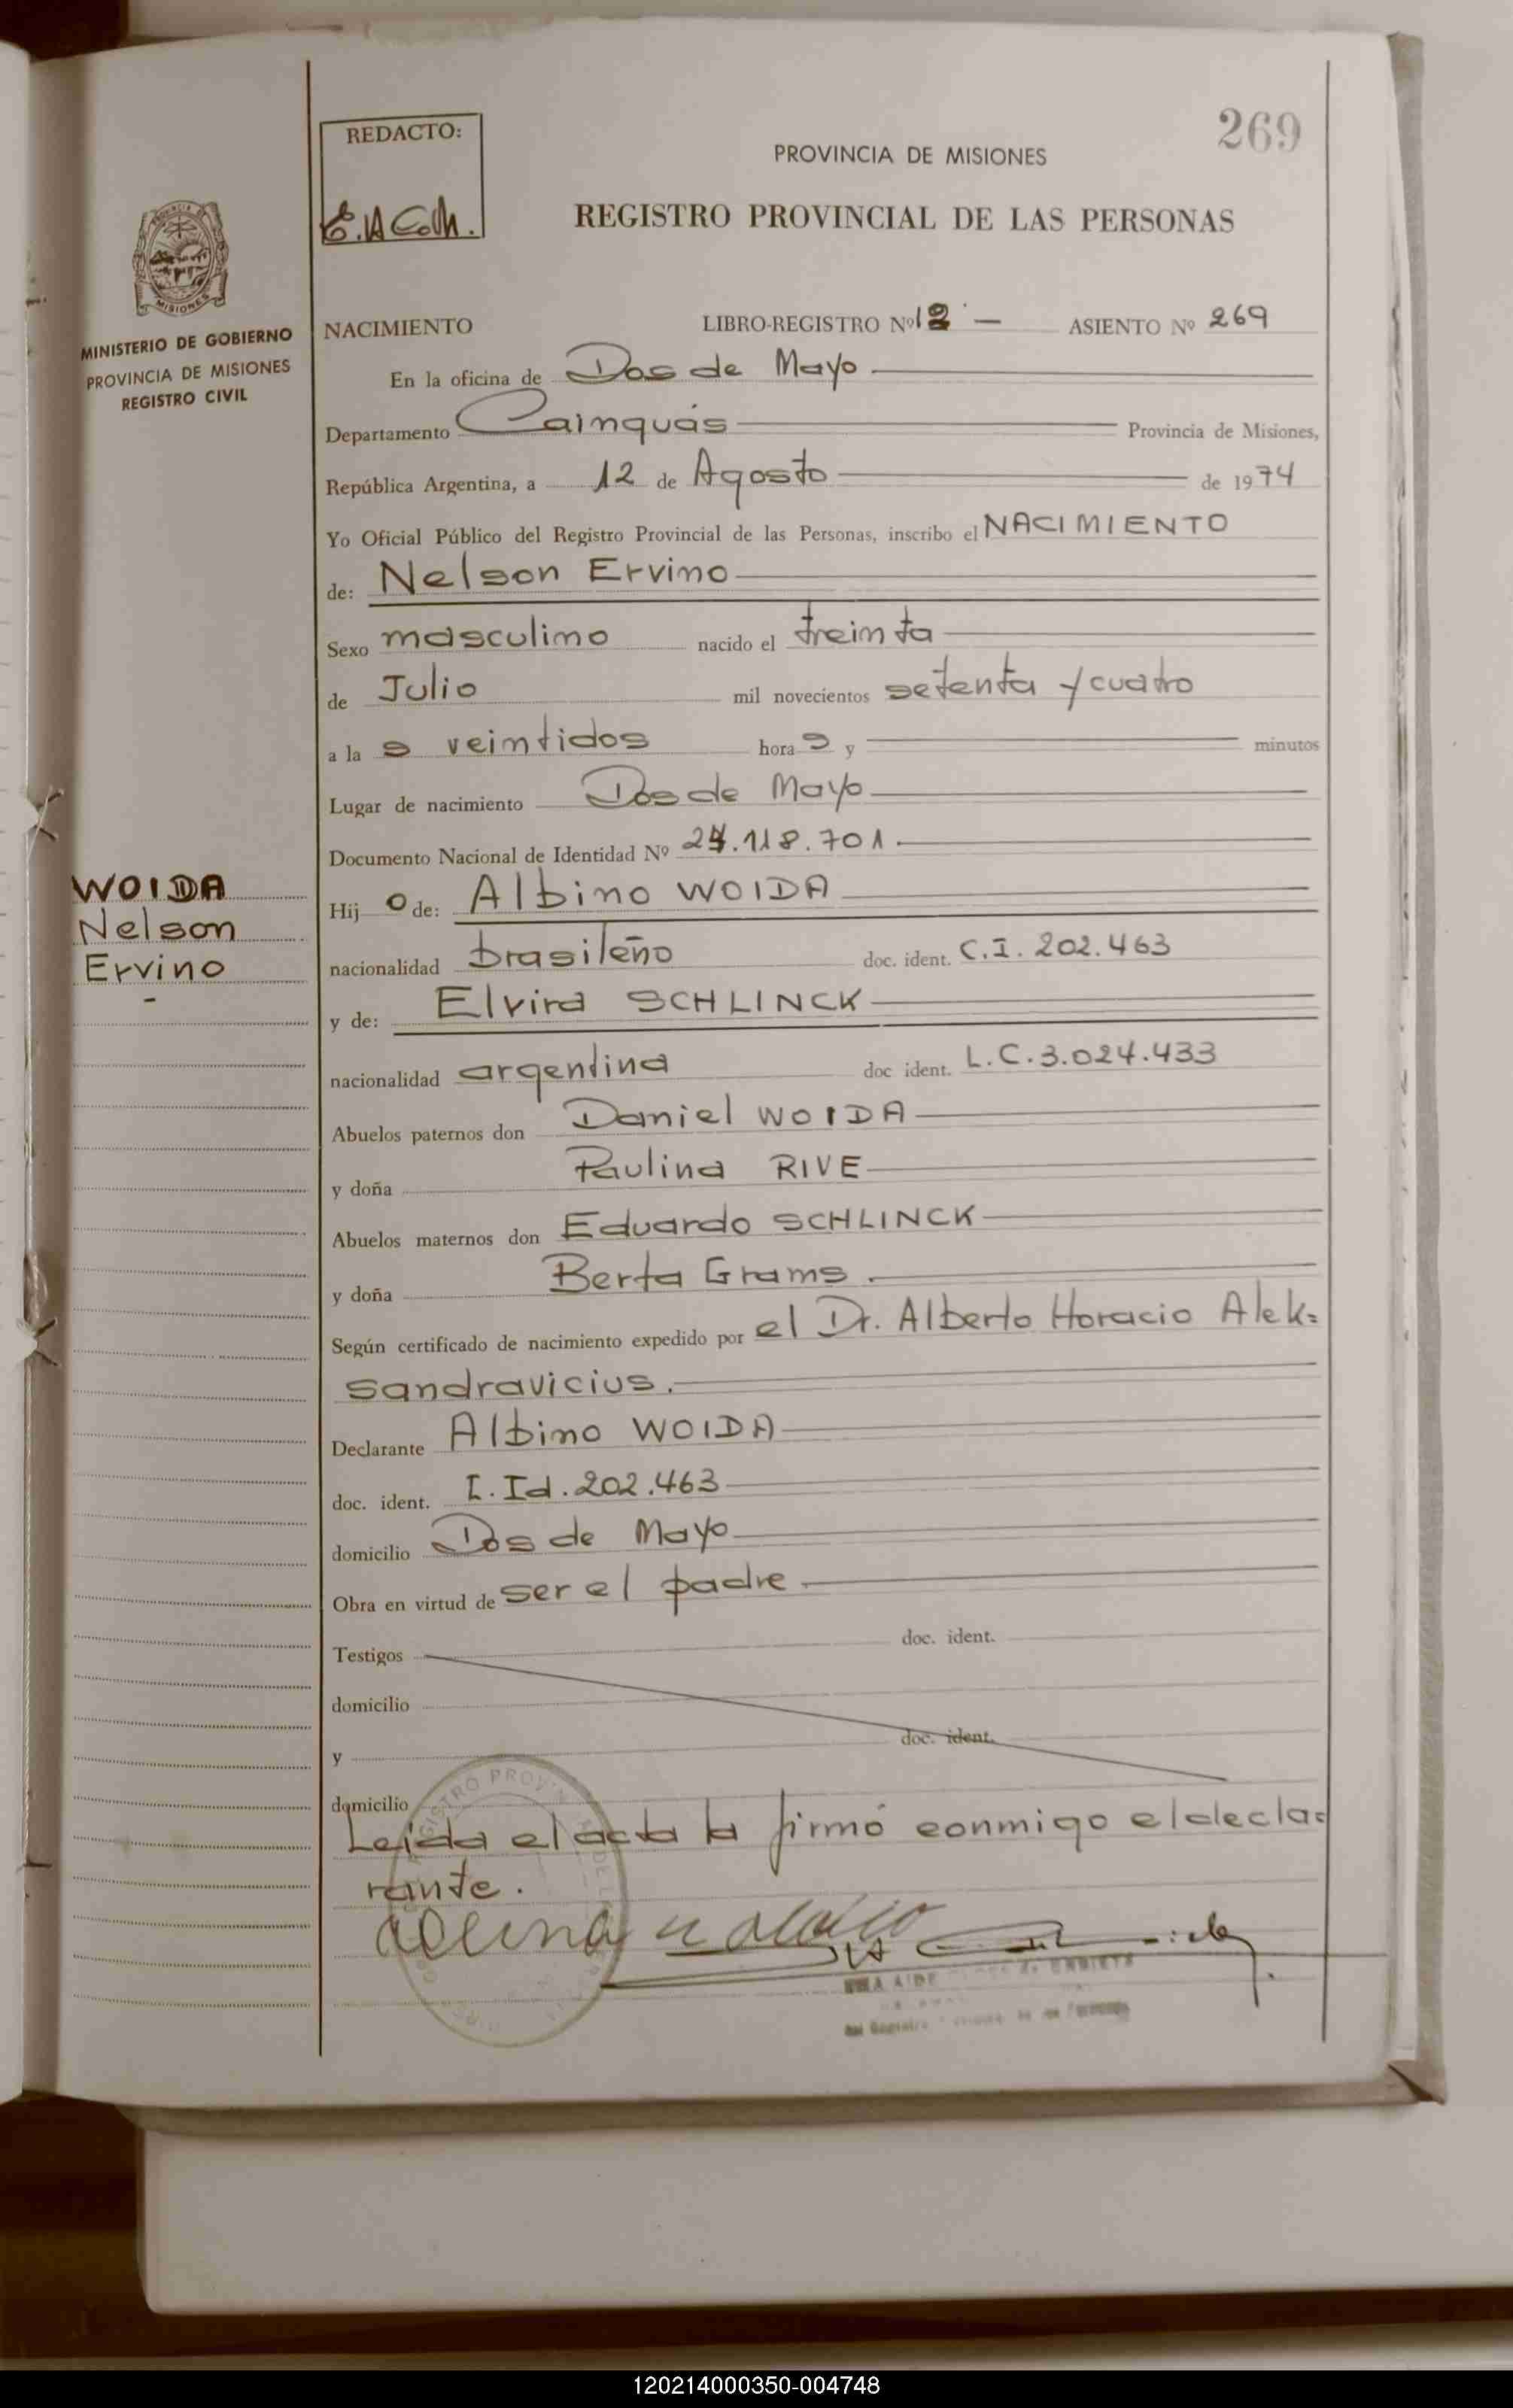 269
REDACTO:
PROVINCIA DE MISIONES
REGISTRO PROVINCIAL DE LAS PERSONAS
MISIONES
MINISTERIO DE GOBIERNO
PROVINCIA DE MISIONES
REGISTRO CIVIL
NACIMIENTO LIBRO-REGISTRO Nº 12 — ASIENTO Nº 269
En la oficina de Dos de Mayo
Departamento Cainguás Provincia de Misiones,
República Argentina, a 12 de Agosto de 1974
Yo Oficial Público del Registro Provincial de las Personas, inscribo el NACIMIENTO
de: Nelson Ervino
Sexo masculino nacido el treinta
de Julio mil novecientos setenta y cuatro
a la s veintidos hora s y minutos
Lugar de nacimiento Dos de Mayo
Documento Nacional de Identidad Nº 24.118.701.
WOIDA
Nelson
Ervino
-
Hij o de: Albino WOIDA
nacionalidad brasileño doc. ident. C.I. 202.463
y de: Elvira SCHLINCK
nacionalidad argentina doc ident. L.C.3.024.433
Abuelos paternos don Daniel WOIDA
y doña Paulina RIVE
Abuelos maternos don Eduardo SCHLINCK
y doña Berta Grams.
Según certificado de nacimiento expedido por el Dr. Alberto Horacio Alek=
sandravicius.
Declarante Albino WOIDA
doc. ident. I. Id. 202.463
domicilio Dos de Mayo
Obra en virtud de ser el padre
Testigos doc. ident.
domicilio
y doc. ident.
domicilio
Leida el acta la firmó conmigo el decla=
rante.
120214000350-004748